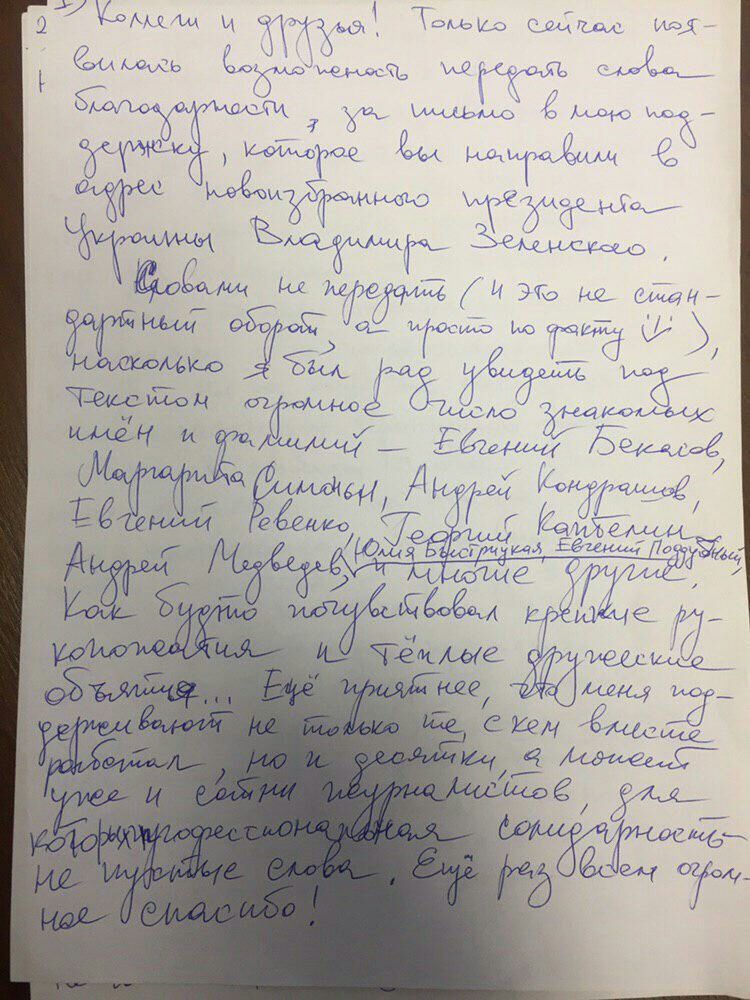 1) Коллеги и друзья! Только сейчас поя-
вилась возможность передать слова
благодарности, за письмо в мою под-
держку, которое вы направили в
адрес новоизбранного президента
Украины Владимира Зеленского.
Словами не передать (и это не стан-
дартный оборот, а просто по факту),
насколько я был рад увидеть под
текстом огромное число знакомых
имён и фамилий – Евгений Бекасов,
Маргарита Симоньян, Андрей Кондрашов,
Евгений Ревенко, Георгий Капбелин
Юлия Быстрицкая, Евгений Поддубный,
Андрей Медведев, и многие другие.
Как будто почувствовал крепкие ру-
копожатия и тёплые дружеские
объятия... Ещё приятнее, что меня под-
держивают не только те, с кем вместе
работал, но и десятки, а может
уже и сотни журналистов, для
которых профессиональная солидарность
не пустые слова. Ещё раз всем огром-
ное спасибо!